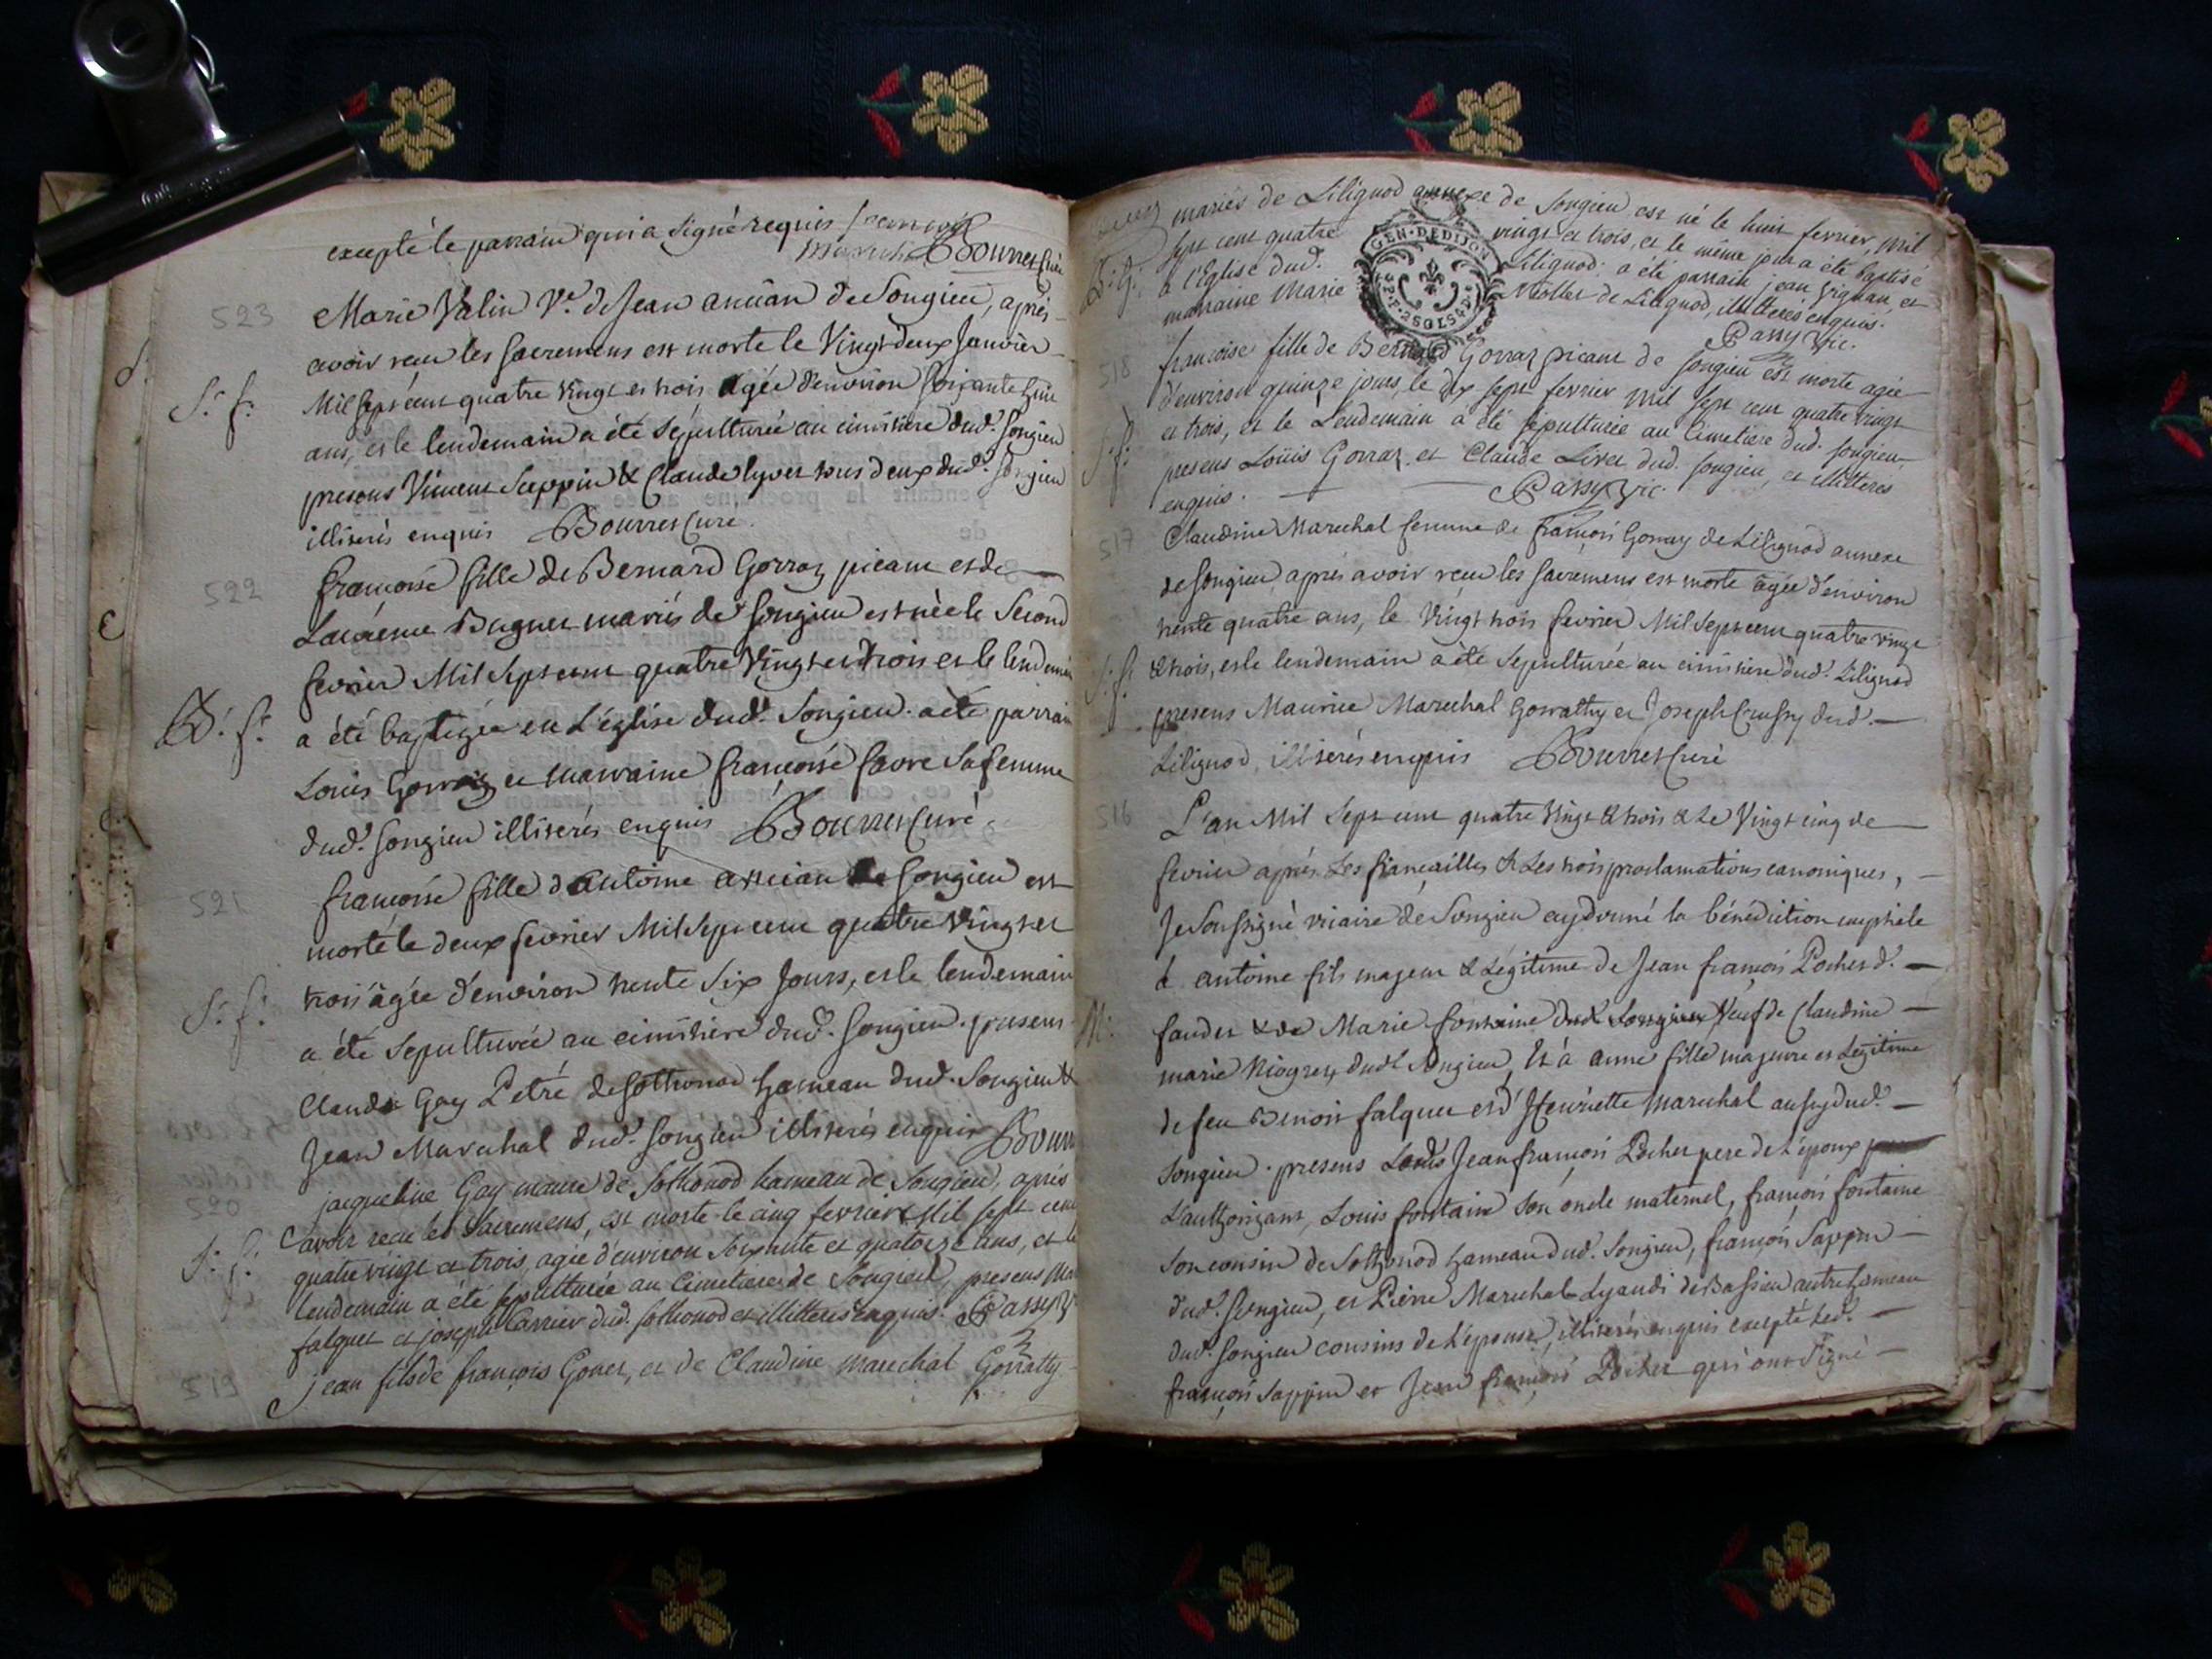 excepté le parrain qui a signé requis françois
Marechal Bourret Curé
523
Marie Valin Ve. de Jean ancian de Songieu, après
avoir reçu les sacremens est morte le Vingt deux Janvier
Mil sept cent quatre Vingt et trois agée d'environ soixante huit
S. f.
ans, et le lendemain a été sépulturée au cimitière dud. Songieu
presens Vincent Sappin & Claude lyvet tous deux dud. Songieu
illiterés enquis Bourret Curé.
522
françoise fille de Bernard Gorraz picam et de
Laurence Bugnet mariés de Songieu est née le Second
fevrier Mil Sept cent quatre Vingt et trois et le lendemain
B. f.
a été baptizée en L'église dud. Songieu. a été parrain
Louis Gorraz et marraine françoise favre Sa femme
dud. Songieu illiterés enquis Bourret Curé.
521
françoise fille d'antoine ancian de Songieu est
morte le deux fevrier Mil Sept cent quatre Vingt et
trois âgée d'environ trente Six Jours, et le lendemain
S. f.
a été Sepulturée au cimitière dud. Songieu. presens
Claude Gay Petré de sothonod hameau dud. Songieu &
Jean Marechal dud. Songieu illiterés enquis Bourr
520
jacqueline Gay maure de Sothonod hameau de Songieu, après
avoir reçu les Sacremens, est morte le cinq fevrier Mil sept cent
S. f.
quatre vingt et trois, agée d'environ Soixante et quatorze ans, et le
lendemain a été sepulturée au Cimetiere de Songieu, presens
falquet et joseph Carrier dud. Sothonod et illitteres enquis. Passy V
519
jean fils de françois Goret, et de Claudine marechal Gorrathy
mariés de Lilignod annexe de Songieu est né le huit fevrier, mil
sept cent quatre vingt et trois, et le même jour a été baptisé
B. G.
a l'Eglise dud. Lilignod. a été parrain jean vignan, et
marraine Marie Mollet de Lilignod, illitterés enquis.
Passy Vic.
GEN. DE DIJON
518
françoise fille de Bernard Gorraz picam de Songieu est morte agée
d'environ quinze jours, le dix sept fevrier mil sept cent quatre vingt
et trois, et le Lendemain a été sepulturée au Cimetiere dud. Songieu,
S. f.
presens Loüis Gorraz et Claude Livet dud. Songieu, et illitteres
enquis. Passy Vic.
517
Claudine Marechal femme de françois Gorraz de Lilignod annexe
de Songieu après avoir reçu les sacremens est morte âgée d'environ
trente quatre ans, le Vingt trois fevrier Mil Sept cent quatre vingt
S. f.
& trois, et le lendemain a été Sepulturée au cimitiere dud. Lilignod
presens Maurice Marechal Gorrathy et Joseph Crussy dud.
Lilignod illiterés enquis Bourret Curé
516
L'an Mil Sept cent quatre Vingt & trois & Le Vingt cinq de
fevrier après Les fiançailles & Les trois proclamations canoniques,
Je Soussigné vicaire de Songieu ay donné la bénédiction nuptiale
à antoine fils majeur & Légitime de Jean françois Pochet d.
M.
faudet & de Marie fontaine dud. Songieu Veuf de Claudine
marie Niogrey dudt Songieu, Et à anne fille majeure et Légitime
de feu Benoit falquet et d'Henriette Marechal aussy dud.
Songieu. presens Jean françois Pochet pere de L'époux
L'authorizant, Louis fontaine Son oncle maternel, françois fontaine
Son cousin de Sothonod hameau dud. Songieu, françois Sappin
dud. Songieu, et Pierre Marechal Lyaudi de Bassieu autre hameau
dud. Songieu cousins de L'épouse, illiterés enquis excepté Led.
françois Sappin et Jean françois Pochet qui ont Signé